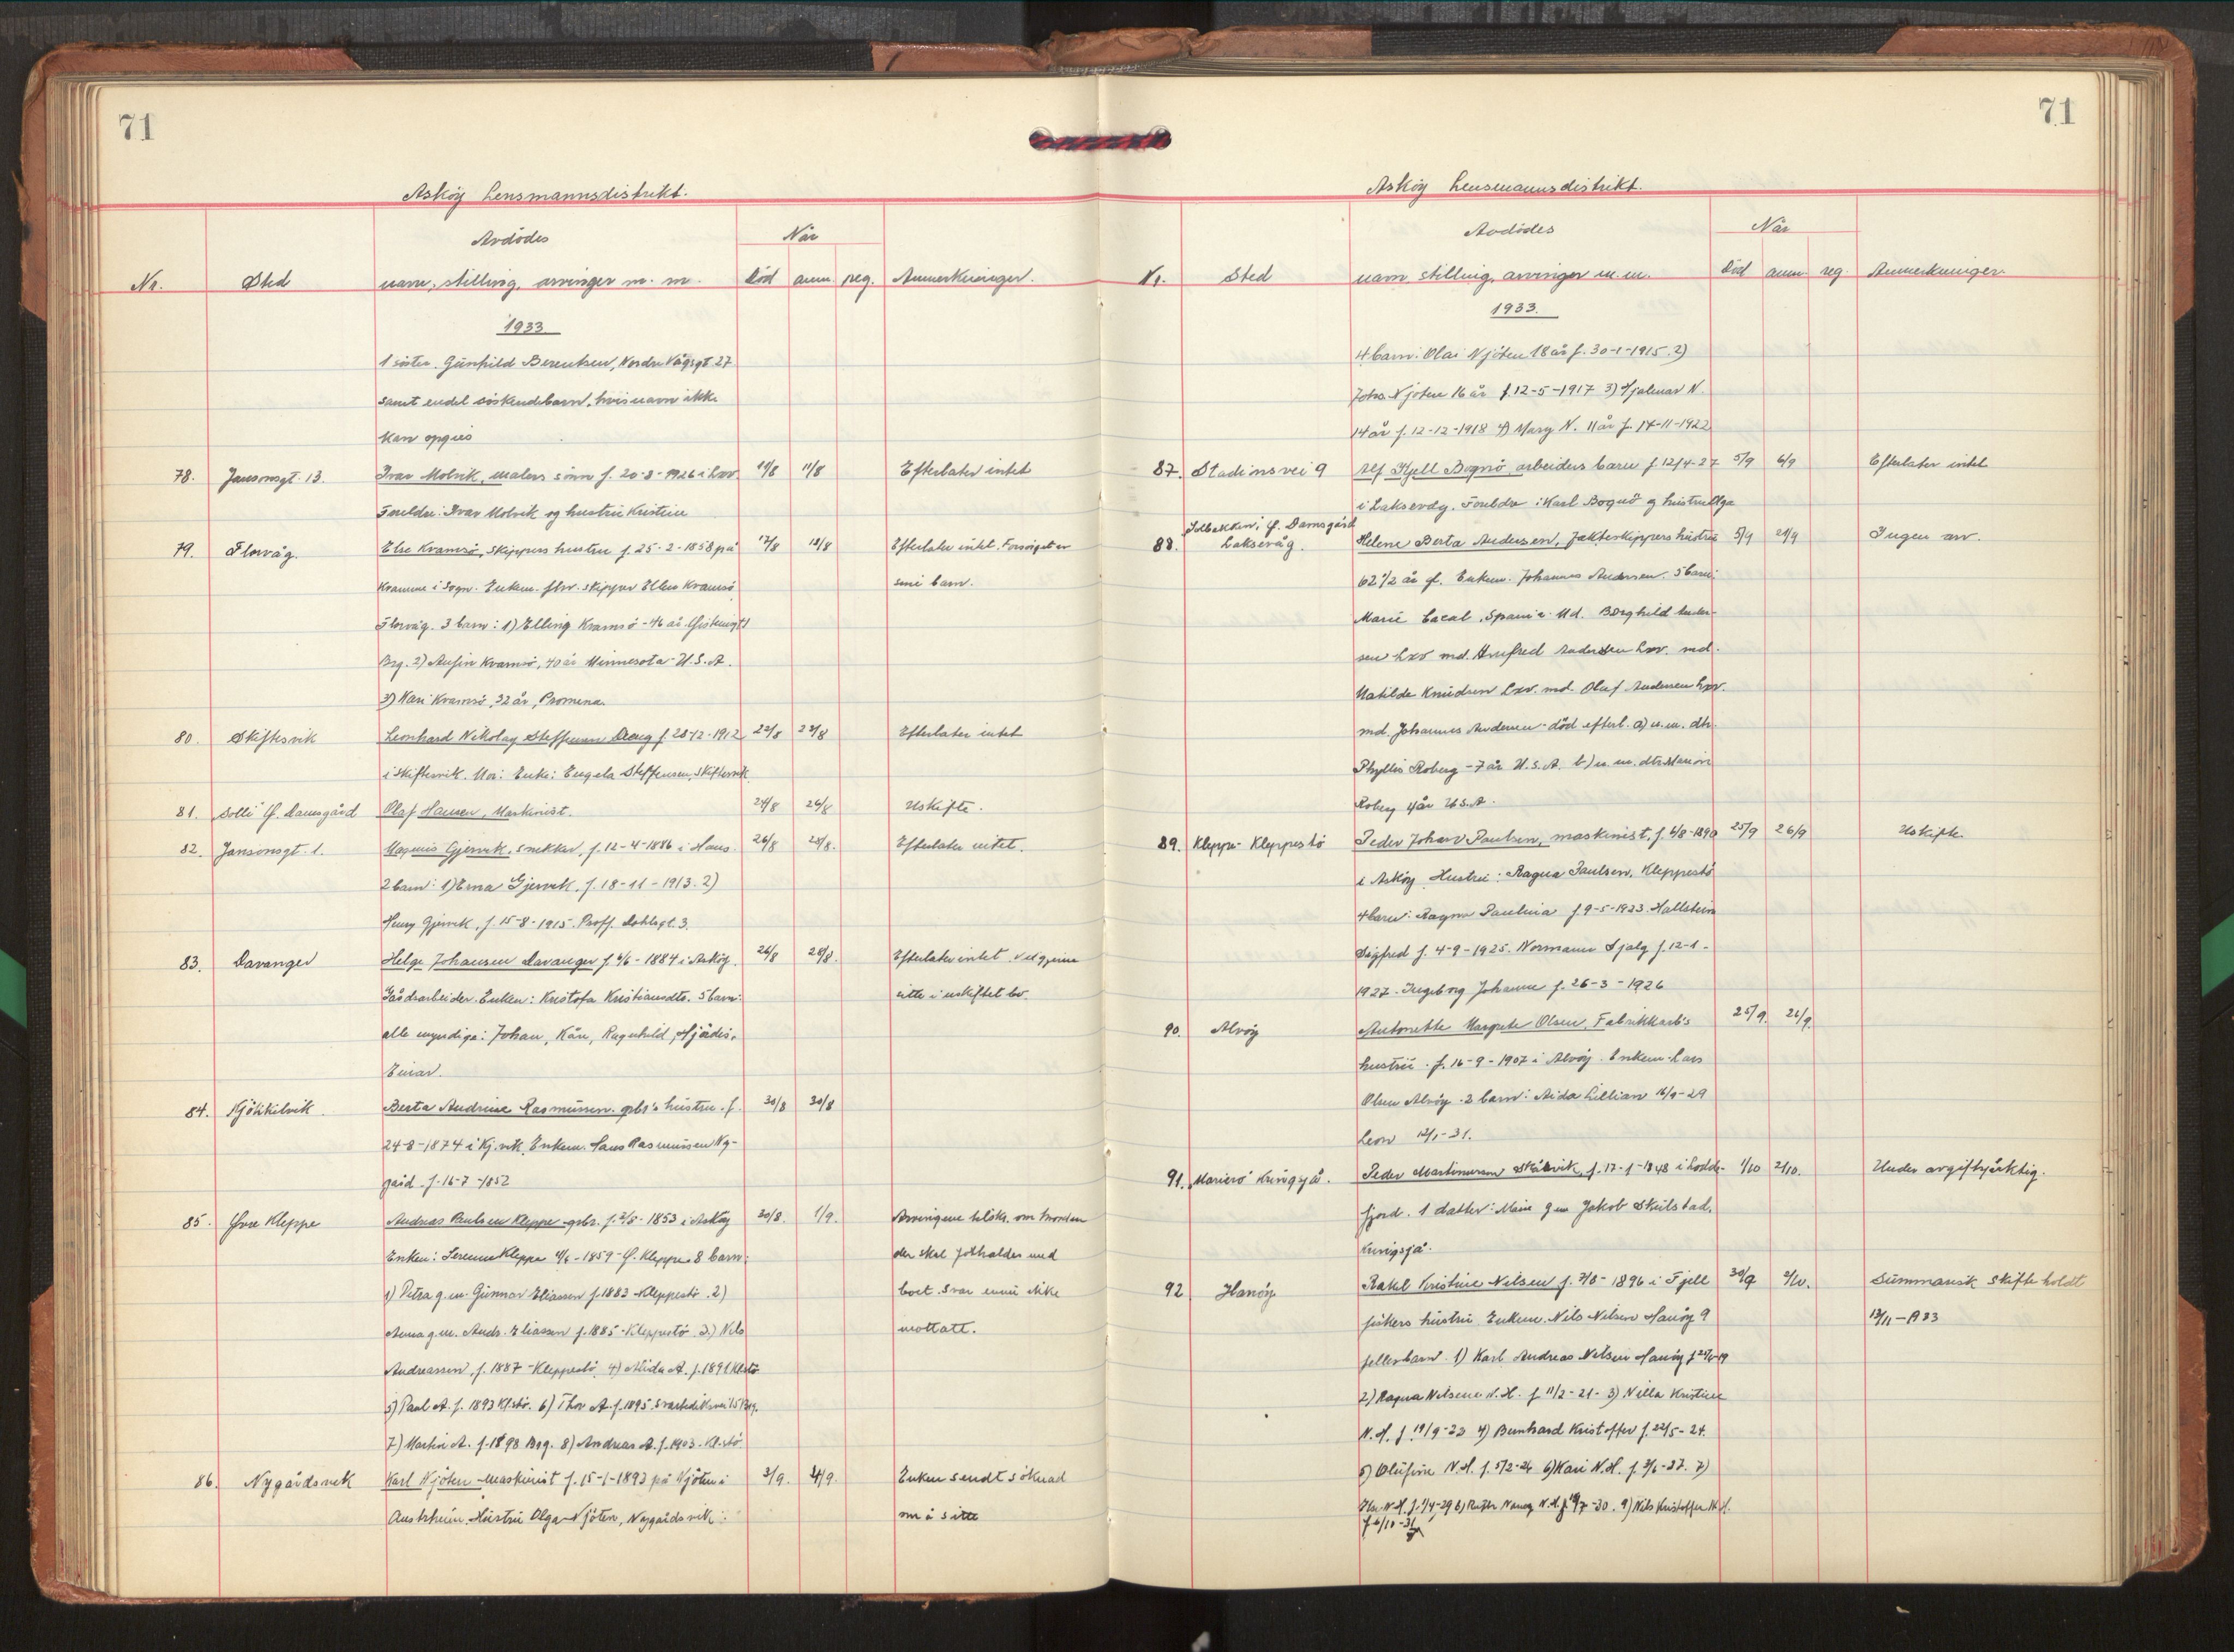 71
Askøy Lensmannsdistrikt.
Avdödes
Når
Nr. Sted navn, stilling, arvinger m. m. död anm. reg. Anmerkninger.
1933
1 söster. Gunhild Berentsen, Nordre Vågsgt. 27
samt endel söskendebarn, hvis navn ikke
kan opgies
78. Jansonsgt. 13. Ivar Molvik, malers sönn f. 20-3-1926 i Lxv. 10/8 11/8 Efterlater intet
Foreldre: Ivar Molvik og hustru Kristine
79. Florvåg. Else Kramsö, skippers hustru f. 25-2-1858 på 17/8 18/8 Efterlater intet. Forsörget av
i Sogn. Enkem. fhv. skipper Elling Kramsö sine barn.
Florvåg. 3 barn: 1) Elling Kramsö - 46 år
Brg. 2) Anfin Kramsö, 40 år Minnesota U.S.A.
3) Kari Kramsö, 32 år,
80. Skiftesvik Leonhard Nikolay Steffensen Dreng f. 28-12-1912 22/8 23/8 Efterlater intet
i Skiftesvik. Mor: Enke: Engela Steffensen, Skiftesvik
81. Solli Y. Damsgård Olaf Hansen, Maskinist. 24/8 26/8 Uskifte.
82. Jansonsgt. 1. Magnus Gjervik, snekker, f. 12-4-1886 i Haus. 26/8 28/8. Efterlater intet.
2 barn: 1) Erna Gjervik, f. 18-11-1913. 2)
Henry Gjervik, f. 15-8-1915. Proff. Dahlsgt. 3.
83. Davanger Helge Johansen Davanger f. 6/6-1884 i Askøy. 26/8 28/8. Efterlater intet. Vil gjerne
Gårdsarbeider. Enken: Kristofa Kristiansdtr. 5 barn: sitte i uskiftet bo.
alle myndige: Johan, Kåre, Ragnhild, Hjördis,
Einar.
84. Kjökkelvik Berta Andrine Rasmussen. gbr's hustru. f. 30/8 30/8
24-8-1874 i Kj.vik. Enkem. Hans Rasmussen Ny-
gård f. 16-7-1852
85. Övre Kleppe Andreas Paulsen Kleppe gbr. f. 2/5-1853 i Askøy 30/8. 1/9. Arvingene tilskr. om hvordan
Enken: Serene Kleppe 4/6-1859 - Y. Kleppe. 8 barn: der skal forholdes med
1) Petra g.m. Gunnar Eliassen f. 1883 Kleppestö. 2) boet. Svar ennu ikke
Anna g.m. Andr. Eliassen f. 1885 - Kleppestö 3.) Nils mottatt.
Andreassen, f. 1887 - Kleppestö. 4) Alida A. f. 1891 Kl.stö
5) Paul A. f. 1893 Kl.stö. 6) Thor A. f. 1895. Svartediksvei 15 Brg.
7.) Martin A. f. 1898 Brg. 8) Andreas A. f. 1903. Kl.stö.
86. Nygårdsvik Karl Njöten - maskinist f. 15-1-1893 på Njöten i 3/9. 4/9. Enken sendt söknad
Austrheim. Hustru Olga Njöten, Nygårdsvik: om å sitte
71
Askøy Lensmannsdistrikt.
Avdödes
Når
Nr. Sted navn, stilling, arvinger m. m. död anm. reg. Anmerkninger.
1933.
4 barn: Olai Njöten 18 år f. 30-1-1915. 2)
Johs. Njöten 16 år f. 12-5-1917 3) Hjalmar N.
14 år f. 12-12-1918 4) Mary N. 11 år f. 14-11-1922
87. Stadionsvei 9 Alf Kjell Bognö, arbeiders barn f. 12/4-27 5/9 6/9 Efterlater intet
i Laksevåg. Foreldre: Karl Bognö og hustru Olga
Solbakken, Y. Damsgård
88. Laksevåg. Helene Berta Andersen, Jakteskippers hustru 5/9 21/9 Ingen arv.
62 1/2 år gl. Enkem. Johannes Andersen. 5 barn:
Marie Cacal, Spania. Md. Borghild Ander-
sen Lxv md. Arnfred Andersen Lxv. md.
Matilde Knudsen Lxv. md. Oluf Andersen Lxv.
md. Johannes Andersen - död efterl. a) u.m. dtr.
Phyllis Roberg - 7 år U.S.A. b) u. m. dtr. Marion
Roberg 4 år U.S.A.
89. Kleppe - Kleppestö Peder Johan Paulsen, maskinist, f. 6/8-1890 25/9 26/9 Uskifte.
i Askøy. Hustru: Ragna Paulsen. Kleppestö
4 barn: Ragna Paulina f. 9-5-1923. Hallstein
Sigfred f. 4-9-1925. Normann Hjalg f. 12-1-
1927. Ingeborg Johanne f. 26-3-1926
90. Alvöy Antonette Margrete Olsen, Fabrikkarb's 25/9. 26/9.
hustru. f. 16-9-1907 i Alvöy. Enkem. Lars
Olsen Alvöy. 2 barn: Aida Lillian 16/9-29
Leon 12/1-31.
91. Marierö Kringsjå. Peder Martinussen Skålevik, f. 17-1-1848 i Lodde- 1/10 2/10. Under avgiftspliktig.
fjord. 1 datter: Marie g.m. Jakob Skulstad,
Kringsjå.
92 Hanöy Rakel Kristine Nilsen f. 7/8-1896 i Fjell 30/9 2/10. Summarisk skifte holdt
fiskers hustru Enkem. Nils Nilsen Hanöy 9 13/11-1933
fellesbarn. 1) Karl Andreas Nilsen Hanöy f.
2) Ragna Nilsene N.H. f. 11/2-21- 3) Nilla Kristine
N.H. f. 19/9-23 4) Bernhard Kristoffer f. 22/5-24.
5) Olufine N.H. f. 5/2-26 6) Kari N.H. f. 3/6-27. 7)
N.H. f. 1/4-29 8) Ruth Nancy N.H. f. 19/7-30. 9) Nils Kristoffer N.H.
f. 6/10-31